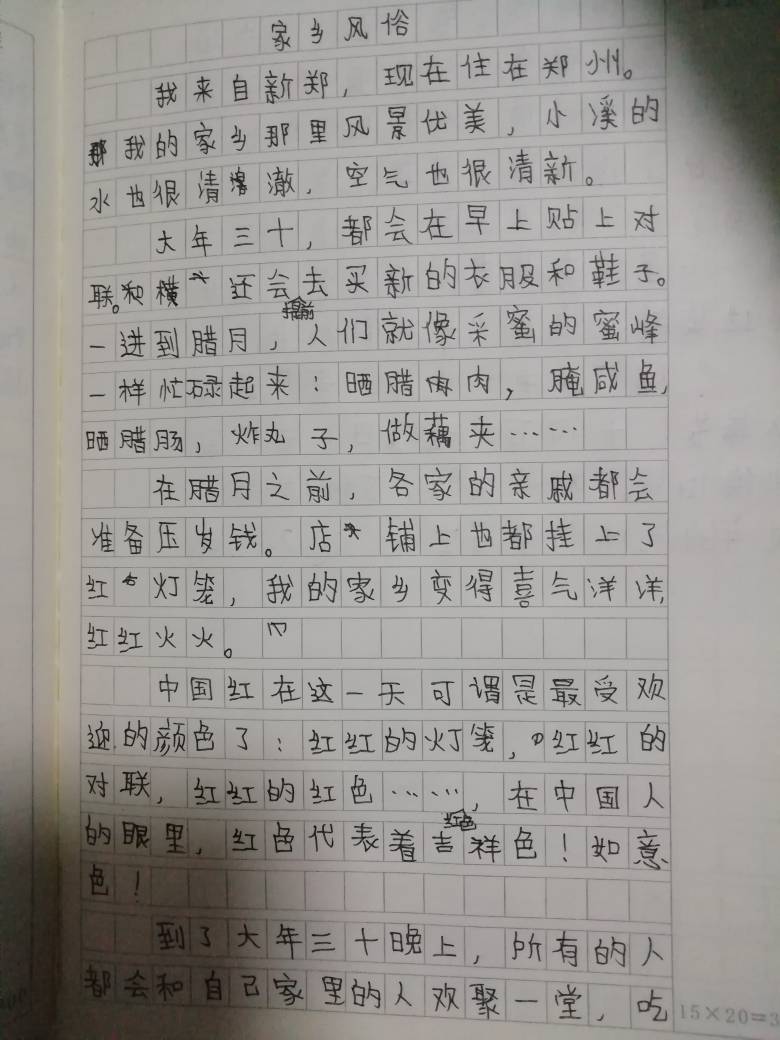 家乡风俗
我来自新郑，现在住在郑州。
我的家乡那里风景优美，小溪的
水也很清澈，空气也很清新。
大年三十，都会在早上贴上对
联。和横 还会去买新的衣服和鞋子。
提前
一进到腊月，人们就像采蜜的蜜峰
一样忙碌起来：晒腊肉，腌咸鱼，
晒腊肠，炸丸子，做藕夹……
在腊月之前，各家的亲戚都会
准备压岁钱。店铺上也都挂上了
红灯笼，我的家乡变得喜气洋洋，
红红火火。
中国红在这一天可谓是最受欢
迎的颜色了：红红的灯笼，红红的
对联，红红的红色……，在中国人
红色
的眼里，红色代表着吉祥色！如意
色！
到了大年三十晚上，所有的人
都会和自己家里的人欢聚一堂，吃
15×20=3